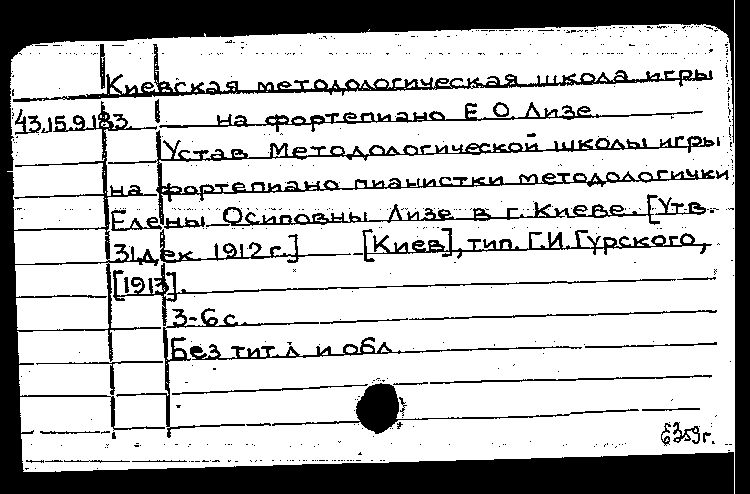 Киевская методологическая школа игры
43.15.9.183. на фортепиано Е.О. Лизе.
Устав Методологической школы игры
на фортепиано пианистки методологички
Елены Осиповны Лизе в г. Киеве. [Утв.
31 дек. 1912 г.] [Киев], тип. Г.И. Гурского,
[1913].
3-6 с.
Без тит. л. и обл.